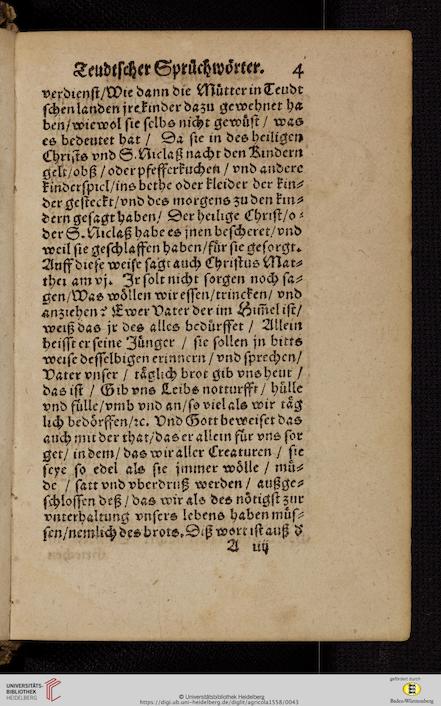 Teudtscher Sprüchwörter. 4
verdienst/Wie dann die Mütter in Teudt
schen landen jre kinder dazu gewehnet ha
ben/wiewol sie selbs nicht gewüst / was
es bedeutet hat / Da sie in des heiligen
Christs vnd S. Niclaß nacht den Kindern
gelt/obß / oder pfefferkuchen / vnd andere
kinderspiel/ins bethe oder kleider der kin⸗
der gesteckt/vnd des morgens zu den kin⸗
dern gesagt haben/ Der heilige Christ/o⸗
der S. Niclaß habe es jnen bescheret/vnd
weil sie geschlaffen haben/für sie gesorgt.
Auff diese weise sagt auch Christus Mat⸗
thei am vj. Ir solt nicht sorgen noch sa⸗
gen/Was wöllen wir essen/trincken/ vnd
anziehen? Ewer Vater der im Him̃el ist/
weiß das jr des alles bedürffet / Allein
heisst er seine Jünger / sie sollen jn bitts
weise desselbigen erinnern/vnd sprechen/
Vater vnser / täglich brot gib vns heut /
das ist / Gib vns Leibs notturfft / hülle
vnd fülle/vmb vnd an/so viel als wir täg
lich bedörffen/ꝛc. Vnd Gott beweiset das
auch mit der that/das er allein für vns sor
get/ in dem/ das wir aller Creaturen / sie
seye so edel als sie jmmer wölle / mü⸗
de / satt vnd vberdruß werden / außge⸗
schlossen deß/das wir als des nötigst zur
vnterhaltung vnsers lebens haben müs⸗
sen/nemlich des brots. Diß wort ist auß d̕
A iiij
UNIVERSITÄTS-
BIBLIOTHEK
HEIDELBERG
© Universitätsbibliothek Heidelberg
https://digi.ub.uni-heidelberg.de/diglit/agricola1558/0043
gefördert durch
Baden-Württemberg